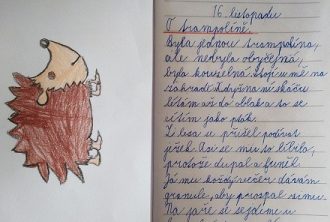 16. listopadu
O trampolíně.
Byla jednou trampolína,
ale nebyla obyčejná,
byla kouzelná. Stojí u mě na
zahradě. Když na ní skáču
létám až do oblak a to se
cítím jako pták.
Z lesa se přišel podívat
ježek. Moc se mu to líbilo,
protože dupal a funěl.
Já mu každý večer dávám
granule, aby prospal zimu.
Na jaře se sejdeme u